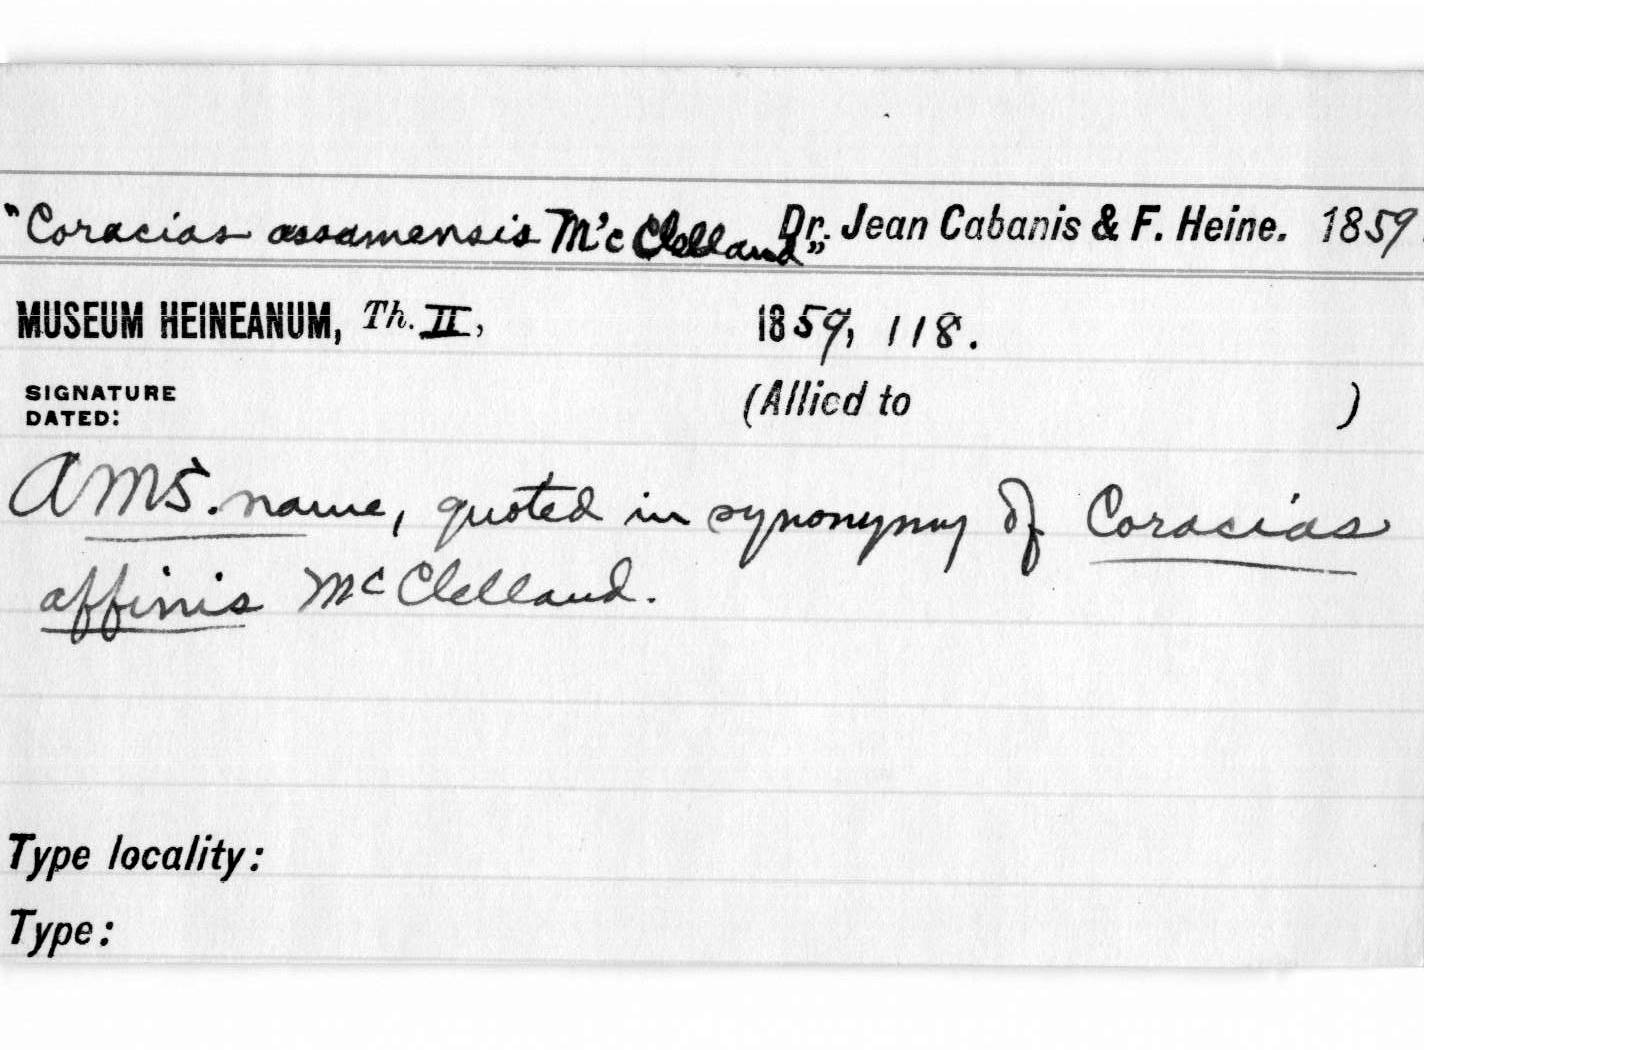 "Coracias assamensis M'cClelland" Dr. Jean Cabanis & F. Heine. 1859.
MUSEUM HEINEANUM, Th. II, 1859, 118.
SIGNATURE
DATED: (Allied to )
A MS. name, quoted in synonymy of Coracias
affinis McClelland.
Type locality:
Type: